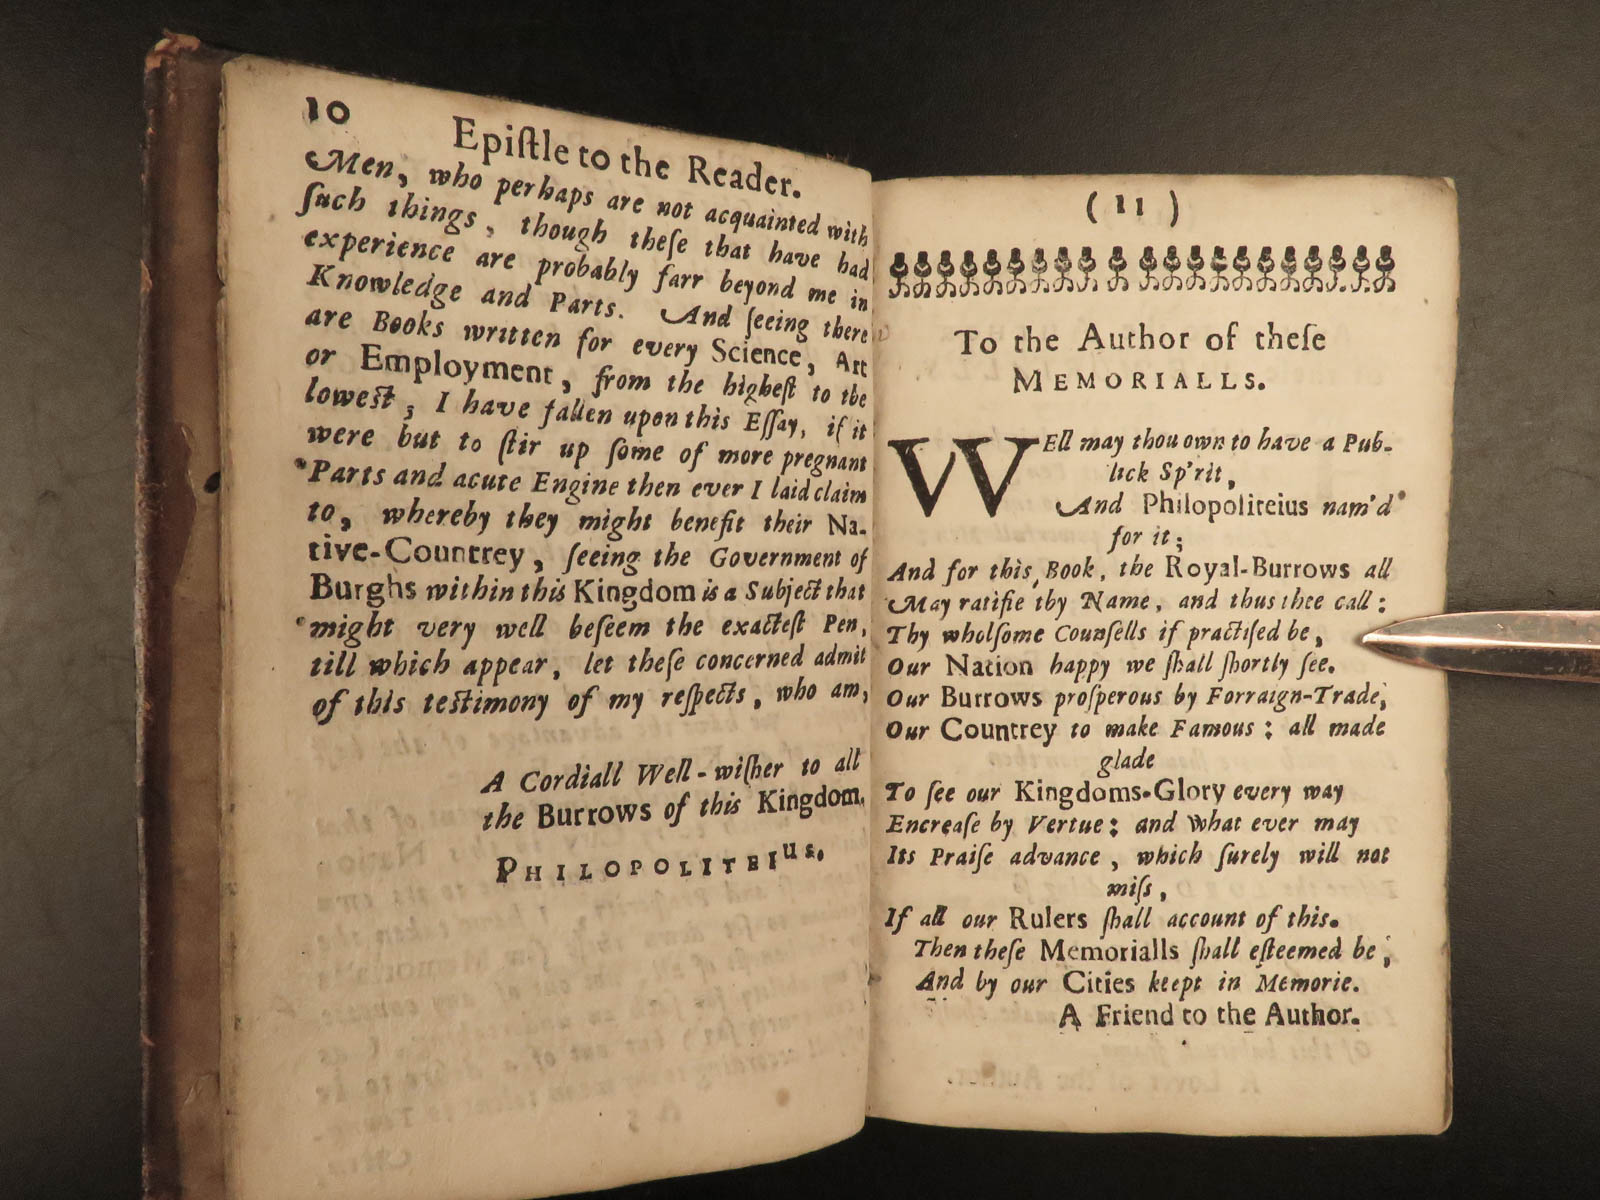 10
Epiſtle to the Reader.
Men, who perhaps are not acquainted with
ſuch things, though theſe that have had
experience are probably farr beyond me in
Knowledge and Parts. And ſeeing there
are Books written for every Science, Art
or Employment, from the higheſt to the
lowest, I have fallen upon this Eſſay, if it
were but to ſtir up ſome of more pregnant
Parts and acute Engine then ever I laid claim
to, whereby they might benefit their Na-
tive-Countrey, ſeeing the Government of
Burghs within this Kingdom is a Subject that
might very well beſeem the exacteſt Pen,
till which appear, let theſe concerned admit
of this testimony of my reſpects, who am,
A Cordiall Well-wiſher to all
the Burrows of this Kingdom.
PHILOPOLITEIus.
(11)
To the Author of theſe
MEMORIALLS.
WEll may thou own to have a Pub-
lick Sp'rit,
And Philopoliteius nam'd
for it;
And for this Book, the Royal-Burrows all
May ratifie thy Name, and thus thee call:
Thy wholſome Counſells if practiſed be,
Our Nation happy we ſhall ſhortly ſee.
Our Burrows proſperous by Forraign-Trade;
Our Countrey to make Famous: all made
glade
To ſee our Kingdoms-Glory every way
Encreaſe by Vertue: and what ever may
Its Praiſe advance, which ſurely will not
miſs,
If all our Rulers ſhall account of this.
Then theſe Memorialls ſhall eſteemed be;
And by our Cities keept in Memorie.
A Friend to the Author.